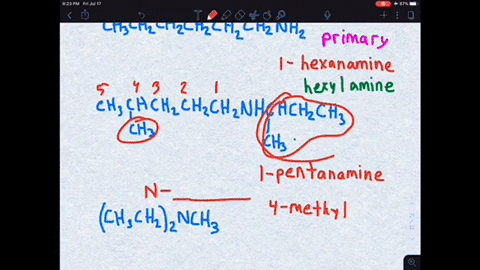 9:23 PM Fri Jul 17
67%
CH₃CH₂CH₂CH₂CH₂CH₂NH₂
primary
1-hexanamine
hexylamine
5 4 3 2 1
CH₃CHCH₂CH₂CH₂NHCHCH₂CH₃
CH₃ CH₃
1-pentanamine
N-
4-methyl
(CH₃CH₂)₂NCH₃